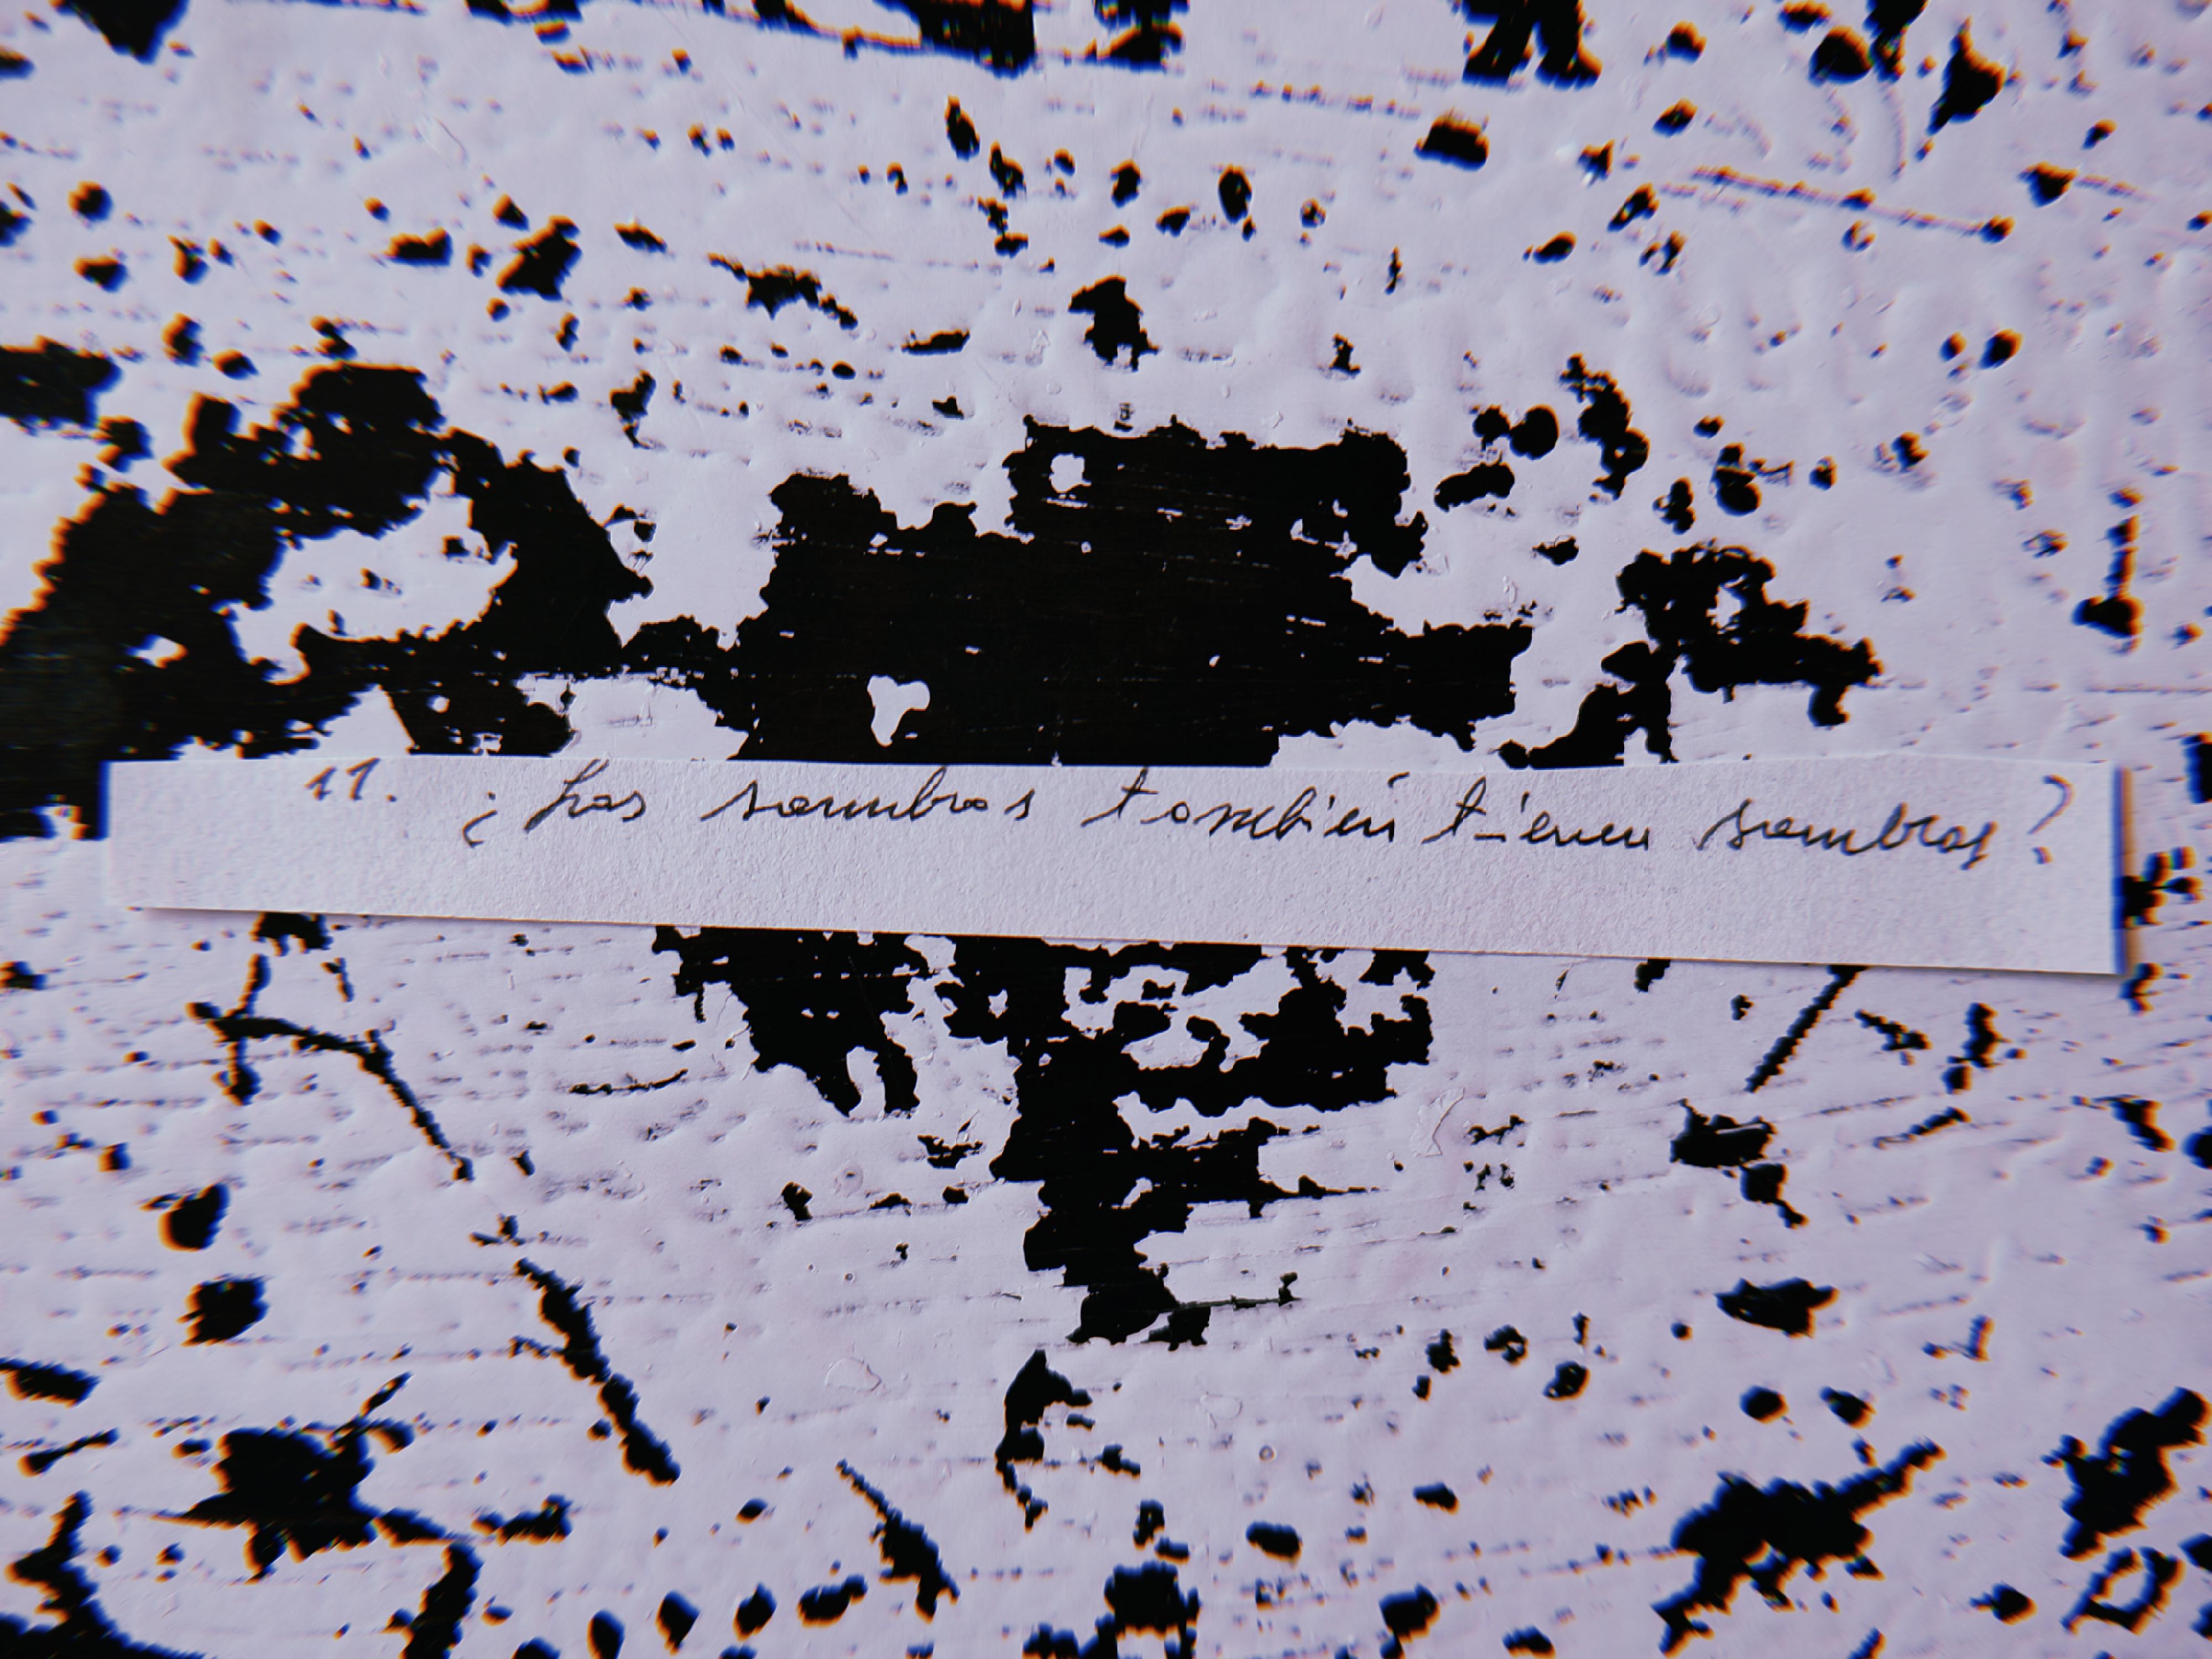 11. ¿Las sombras también tienen sombras?